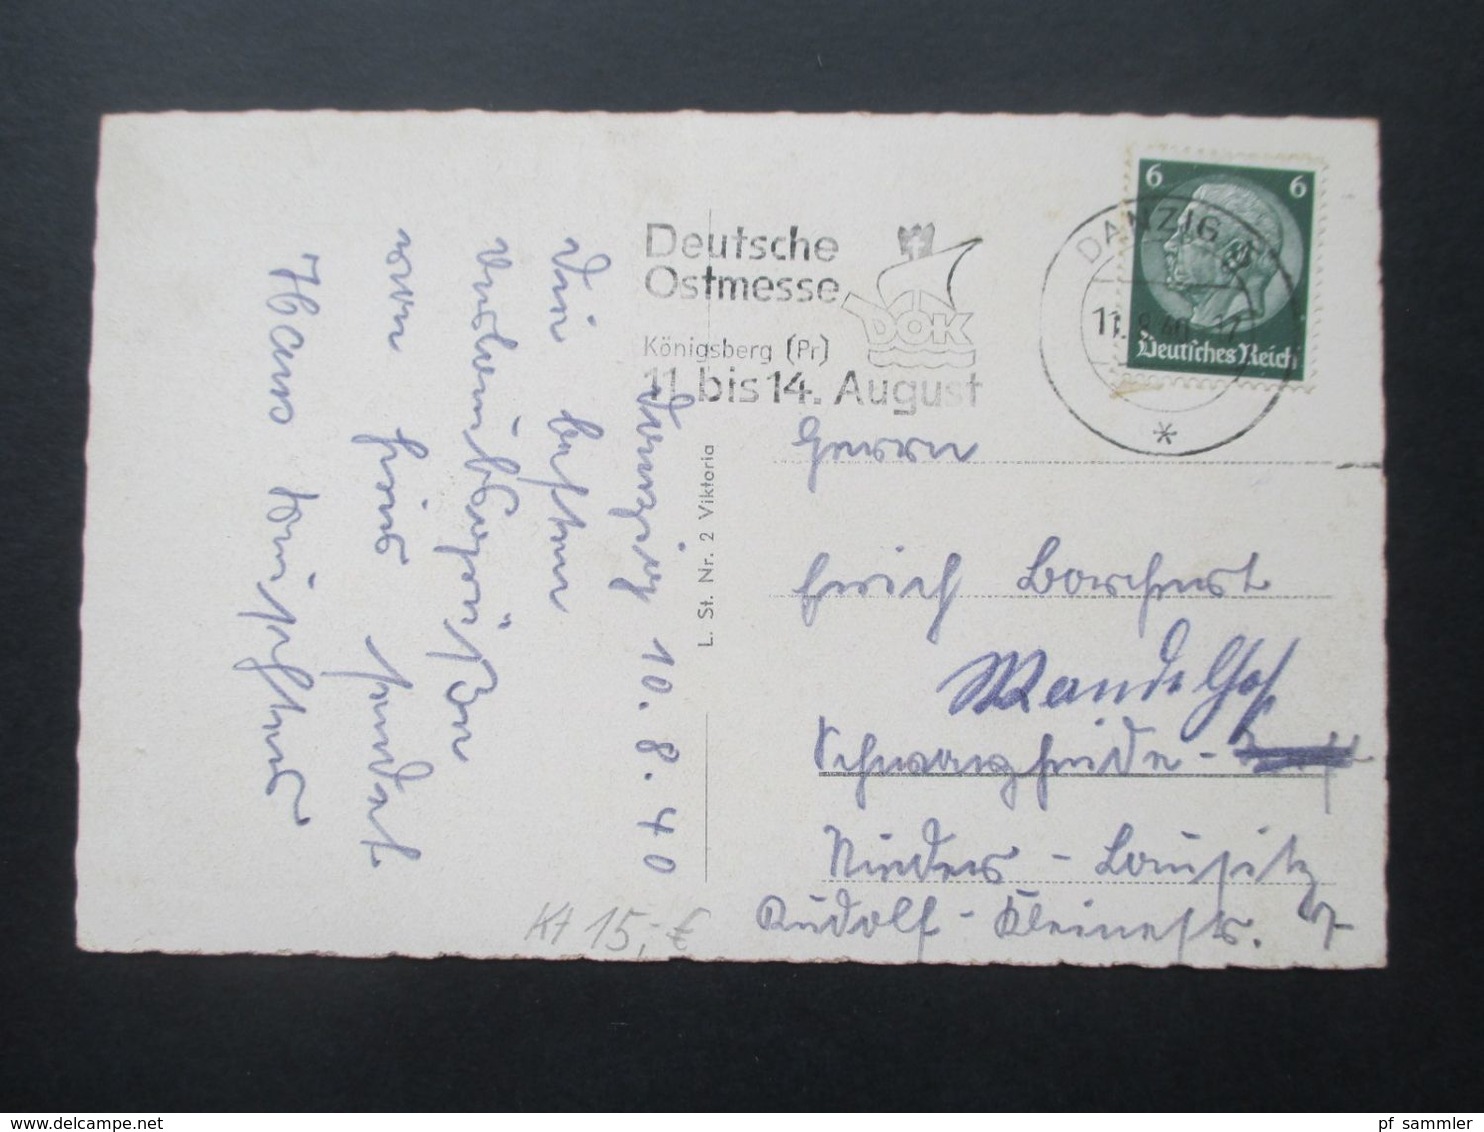 Danzig 10. 8. 40
Die besten
Urlaubsgrüße
von hier sendet
Hans
Deutsche
Ostmesse
DOK
Königsberg (Pr)
11. bis 14. August
DANZIG 5
11.8.40-17
*
6 6
Deutsches Reich
L. St. Nr. 2 Viktoria
Herrn
Erich Borchert
Wandelhof
Schwarzheide-
Nieder-Lausitz
Rudolf-Kleinestr. 7
Kt 15,-€
pf_sammler
www.delcampe.net